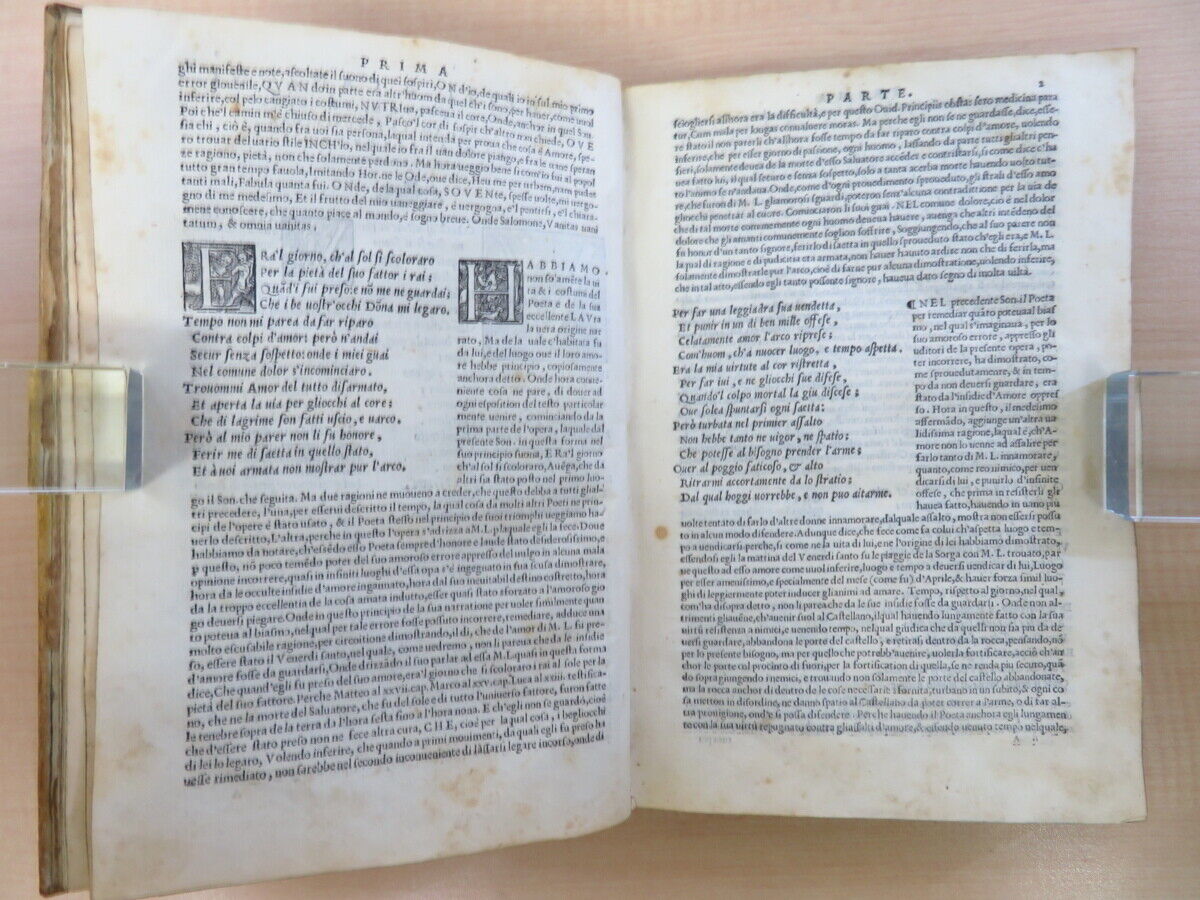 PRIMA
ghi manifeste e note, ascoltate il suono di quei sospiri, ONd'io, de quali io in sul mio primo
error giouenile, QVANdo in parte era altr'huom da quel ch'i sono, per hauer, come uuol
inferire, col pelo cangiato i costumi, NVTRIua, pasceua il core, Onde, anchor in quel Son.
Poi che'l camin m'è chiuso di mercede, Pasco'l cor di sospir ch'altro non chiede, OVE
sia chi, ciò è, quando fra uoi sia persona, laqual intenda per proua che cosa è Amore, spe-
ro trouar del uario stile INCH'io, nel quale io fra il uan dolore piango, e fra le uane speran
ze ragiono, pietà, non che solamente perdono. Ma hora ueggio bene si com'io fui al popol
tutto gran tempo fauola, Imitando Hor. ne le Ode, oue dice, Heu me per urbem, nam pudet
tanti mali, Fabula quanta fui. ONde, de la qual cosa, SOVENte, spesse uolte, mi uergo-
gno di me medesimo, Et il frutto del mio uaneggiare, è uergogna, e'l pentirsi, e'l chiara
mente conoscere, che quanto piace al mondo, è sogno breue. Onde Salomone, Vanitas uani
tatum, & omnia uanitas.
ERa'l giorno, ch'al sol si scoloraro
Per la pietà del suo fattor i rai;
Quãd'i fui preso: e nõ me ne guardai;
Che i be uostr'occhi Dõna mi legaro.
Tempo non mi parea da far riparo
Contra colpi d'amor: però n'andai
Secur senza sospetto: onde i miei guai
Nel comune dolor s'incominciaro.
Trouommi Amor del tutto disarmato,
Et aperta la uia per gliocchi al core;
Che di lagrime son fatti uscio, e uarco.
Però al mio parer non li fu honore,
Ferir me di saetta in quello stato,
Et à uoi armata non mostrar pur l'arco.
HABBIAMO.
non so'amēte la ui
ta & i costumi del
Poeta e de la sua
eccellente LAVra
la uera origine nar
rato, Ma de la uale c'habitaua fu
da lui, e del luogo oue il loro amo-
re hebbe principio, copiosamente
anchora detto. Onde hora conue-
niente cosa ne pare, di douer ad
ogni esposition del testo particolar
mente uenire, cominciando da la
prima parte de l'opera, la quale dal
presente Son. in questa forma nel
principio suona, E Ra'l giorno
ch'al sol si scoloraro, Auēga, che da
altri sia stato posto nel primo luo-
go il Son. che seguita. Ma due ragioni ne muoueno a creder, che questo debba a tutti glial-
tri precedere, l'una, per esserui descritto il tempo, la qual cosa da molti altri Poeti ne prin-
cipi de l'opere è stato usato, & il Poeta stesso nel principio de suoi triomphi ueggiamo ha-
uerlo descritto, L'altra, perche in questo l'opera s'adrizza a M. L. per la quale egli la fece. Doue
habbiamo da notare, ch'essēdo esso Poeta sempre d'honore e laude stato desiderosissimo, e
p questo, nō poco temēdo poter del suo amoroso errore appresso del uulgo in alcuna mala
opinione incorrere, quasi in infiniti luoghi d'essa opa s'è ingegnato in sua scusa dimostrare,
hora da le occulte insidie d'amore ingannato, hora dal suo ineuitabil destino costretto, hora
da la troppo eccellentia de la cosa amata indutto, esser quasi stato sforzato a l'amoroso gio
go deuersi piegare. Onde in questo principio de la sua narratione per uoler similmente quan
to poteua al biasmo, nel qual per tale errore fosse possuto incorrere, remediare, adduce una
molto escusabile ragione, per circoitione dimostrando, il dì, che de l'amor di M. L. fu pre-
so, essere stato il Venerdi santo, nel quale, come uedremo, non li parea che da le insidie
d'amore fosse da guardarsi, Onde drizzādo il suo parlar ad essa M. L. quasi in questa forma
dice, Che quand'egli fu preso del suo amore, era'l giorno che si scoloraro i rai al sole per la
pietà del suo fattore. Perche Matteo al xxvii. cap. Marco al xxv. cap. Luca al xxiii. testifica-
no, che ne la morte del Saluatore, che fu del sole e di tutto l'uniuerso fattore, furon fatte
le tenebre sopra de la terra da l'hora sesta fino a l'hora nona. E ch'egli non se guardò, cioè
che d'essere stato preso non ne fece altra cura, CHE, cioè per la qual cosa, i begliocchi
di lei lo legaro, Volendo inferire, che quando a primi mouimenti, da quali egli fu preso ha
uesse rimediato, non sarebbe nel secondo inconueniente di lassarsi legare incorso, onde di
PARTE. 2
sciogliersi alhora era la difficultà, e per questo Ouid. Principiis obsta: sero medicina para
tur, Cum mala per longas conualuere moras. Ma perche egli non se ne guardasse, dice, esse-
re stato il non parerli ch'alhora fosse tempo da far riparo contra colpi d'amore, uolendo
inferire, che per esser giorno di passione, ogni huomo, lassando da parte tutti glialtri pen-
sieri, solamente deuea de la morte d'esso Saluatore accēder e contristarsi, si come dice c'ha
uea fatto lui, il qual securo e senza sospetto, solo a tanta acerba morte hauendo uolto tut-
to l'animo se n'andaua. Onde, come d'ogni prouedimento sproueduto, gli strali d'esso amo
re, che furon di M. L. gliamorosi sguardi, poteron senz'alcuna contraditione per la uia de
gliocchi penetrar al cuore. Cominciaron li suoi guai. NEL comune dolore, ciò è nel dolor
che di tal morte comunemente ogni huomo deueua hauere, auenga che altri intēdeno del
dolore che gliamanti comunemente soglion soffrire, Soggiungendo, che al suo parere non
fu honor d'un tanto signore, ferirlo di saetta in quello sproueduto stato ch'egli era, e M. L.
la qual di ragione e di pudicitia era armata, non hauere hauuto ardire non che di ferirla, ma
solamente dimostrarle pur l'arco, cioè di farne pur alcuna dimostratione, uolendo inferire,
che in tal atto, essendo egli tanto possente signore, haueua dato segno di molta uiltà.
Per far una leggiadra sua uendetta,
Et punir in un dì ben mille offese,
Celatamente amor l'arco riprese;
Com'huom, ch'a nuocer luogo, e tempo aspetta.
Era la mia uirtute al cor ristretta,
Per far iui, e ne gliocchi sue difese,
Quando'l colpo mortal la giu discese;
Oue solea spuntarsi ogni saetta:
Però turbata nel primier assalto
Non hebbe tanto ne uigor, ne spatio;
Che potesse al bisogno prender l'arme;
Ouer al poggio faticoso, & alto
Ritrarmi accortamente da lo stratio;
Dal qual hoggi uorrebbe, e non puo aitarme.
¶ NEL precedente Son. il Poeta
per remediar quãto poteua al bias
mo, nel qual s'imaginaua, per lo
suo amoroso errore, appresso gli
uditori de la presente opera, po-
ter incorrere, ha dimostrato, co-
me sprouedutamente, & in tem-
po da non deuersi guardare, era
stato da l'insidie d'Amore oppres
so. Hora in questo, il medesimo
affermãdo, aggiunge un'altra ua
lidissima ragione, laqual è, ch'A-
more non lo uenne ad assalire per
farlo tanto di M. L. innamorare,
quanto, come reo nimico, per uen
dicarsi di lui, e punirlo d'infinite
offese, che prima in resisterli gli
hauea fatto, hauendo in uano piu
uolte tentato di farlo d'altre donne innamorare, dal quale assalto, mostra non essersi possu
to in alcun modo difendere. Adunque dice, che fece come fa colui ch'aspetta luogo e tem-
po a uendicarsi, perche, si come ne la uita di lui, e ne l'origine di lei habbiamo dimostrato,
essendosi egli la mattina del Venerdi santo su le piaggie de la Sorga con M. L. trouato, par
ue questo ad esso amore come uuol inferire, luogo e tempo a deuersi uendicar di lui, Luogo
per esser amenissimo, e specialmente del mese (come fu) d'Aprile, & hauer forza simil luo-
ghi di leggiermente poter inducer glianimi ad amare. Tempo, rispetto al giorno, nel qual
com'ha disopra detto, non li parea che da le sue insidie fosse da guardarsi. Onde non al-
trimenti gliauēne, ch'auenir suol al Castellano, il qual hauendo lungamente fatto con la sua
uirtù resistenza a nimici, e uenendo tempo, nel qual giudica che da quelli non sia piu da de
uersi guardare, abbandona le porte del castello, e retirasi dentro da la rocca, pensando, nō
per lo presente bisogno, ma per quello che potreb'auenire, uolerla fortificare, acciò ch'an
chor le porte col procinto di fuori, per la fortification di quella, se ne renda piu securo, quã
do sopragiungendo i nemici, e trouando non solamente le porte del castello abbandonate,
ma la rocca anchor di dentro de le cose necessarie isfornita, turbano in un subito, & ogni co
sa metton in disordine, ne danno spatio al Castellano da poter correr a l'arme, o di far al-
tra prouigione, ond'e si possa difendere. Perche hauendo il Poeta anchora egli lungamen
te con la sua uirtù repugnato contra gliassalti d'amore, & essendo uenuto tempo nel quale,